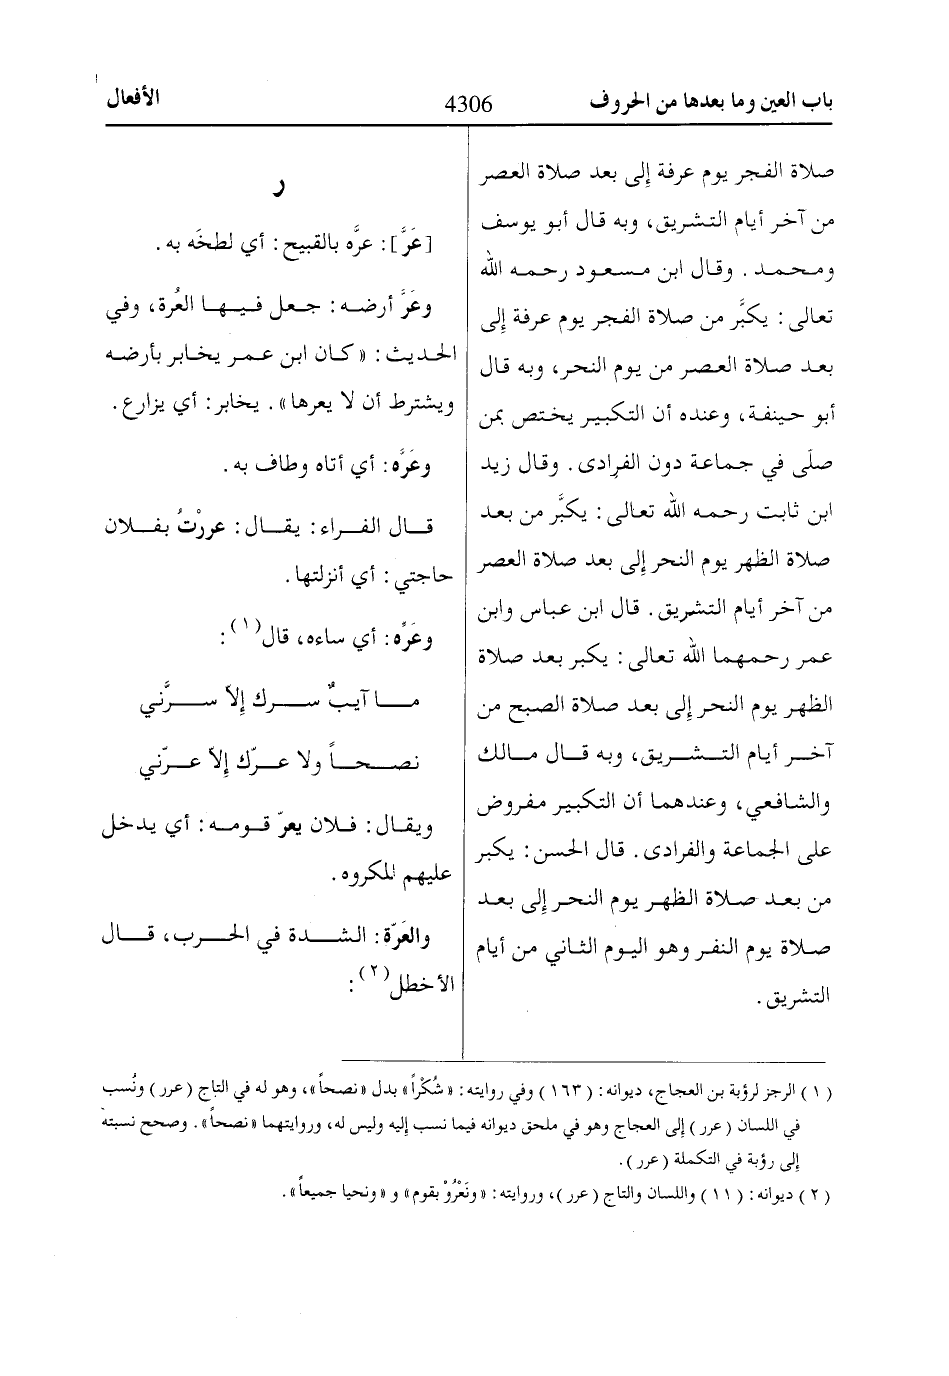 باب العين وما بعدها من الحروف
4306
الأفعال
صلاة الفجر يوم عرفة إلى بعد صلاة العصر
من آخر أيام التشريق، وبه قال أبو يوسف
ومحمد . وقال ابن مسعود رحمه الله
تعالى : يكبَّر من صلاة الفجر يوم عرفة إلى
بعد صلاة العصر من يوم النحر، وبه قال
أبو حنيفة، وعنده أن التكبير يختص بمن
صلّى في جماعة دون الفرادى. وقال زيد
ابن ثابت رحمه الله تعالى : يكبَّر من بعد
صلاة الظهر يوم النحر إلى بعد صلاة العصر
من آخر أيام التشريق. قال ابن عباس وابن
عمر رحمهما الله تعالى : يكبر بعد صلاة
الظهر يوم النحر إلى بعد صلاة الصبح من
آخر أيام التشريق، وبه قال مالك
والشافعي، وعندهما أن التكبير مفروض
على الجماعة والفرادى. قال الحسن : يكبر
من بعد صلاة الظهر يوم النحر إلى بعد
صلاة يوم النفر وهو اليوم الثاني من أيام
التشريق.
ر
[عَرَّ] : عرَّه بالقبيح : أي لطخَه به .
وعَرَّ أرضه : جعل فيها العُرة، وفي
الحديث : « كان ابن عمر يخابر بأرضه
ويشترط أن لا يعرها» . يخابر : أي يزارع.
وعَرَّه : أي أتاه وطاف به .
قال الفراء : يقال : عررْتُ بفلان
حاجتي : أي أنزلتها.
وعَرَّه : أي ساءه، قال(١) :
ما آيبٌ سرك إلاّ سرَّني
نصحاً ولا عرّك إلاّ عرّني
ويقال : فلان يعرّ قومه : أي يدخل
عليهم المكروه.
والعَرّة : الشدة في الحرب، قال
الأخطل(٢) :
(١) الرجز لرؤبة بن العجاج، ديوانه : (١٦٣) وفي روايته : «شُكْراً» بدل «نصحاً»، وهو له في التاج (عرر) ونُسب
في اللسان (عرر) إلى العجاج وهو في ملحق ديوانه فيما نسب إليه وليس له، وروايتهما «نصحاً» . وصحح نسبته
إلى رؤبة في التكملة (عرر).
(٢) ديوانه : (١١) واللسان والتاج (عرر)، وروايته : «ونَعْرُوْ بقوم» و «ونحيا جميعاً».